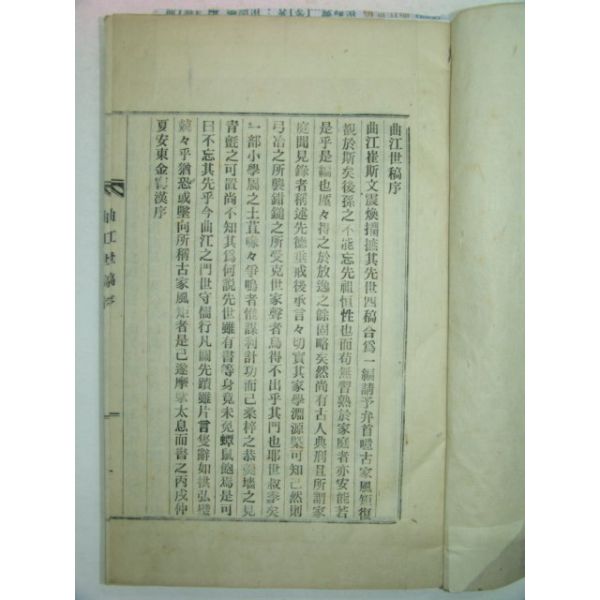 曲江世稿序
曲江崔斯文震煥攟摭其先世四稿合爲一編請予弁首噫古家風矩復
覩於斯矣後孫之不能忘先祖恒性也而苟無習熟於家庭者亦安能若
是乎是編也厪々得之於放逸之餘固略矣然尚有古人典刑且所謂家
庭聞見錄者稱述先德垂戒後承言々切實其家學淵源槩可知已然則
弓冶之所襲鉗鎚之所受克世家聲者烏得不出乎其門也耶世叔季矣
一部小學屬之土苴喙々爭鳴者惟謀利計功而已桑梓之恭羹墻之見
青氈之可置尚不知其爲何說先世雖有書等身竟未免蟫鼠飽焉是可
曰不忘其先乎今曲江之門世守儒行凡關先蹟雖片言隻辭如拱弘璧
兢々乎猶恐或墜向所稱古家風矩者是已遂摩挲太息而書之丙戌仲
夏安東金漢序
曲江世稿序